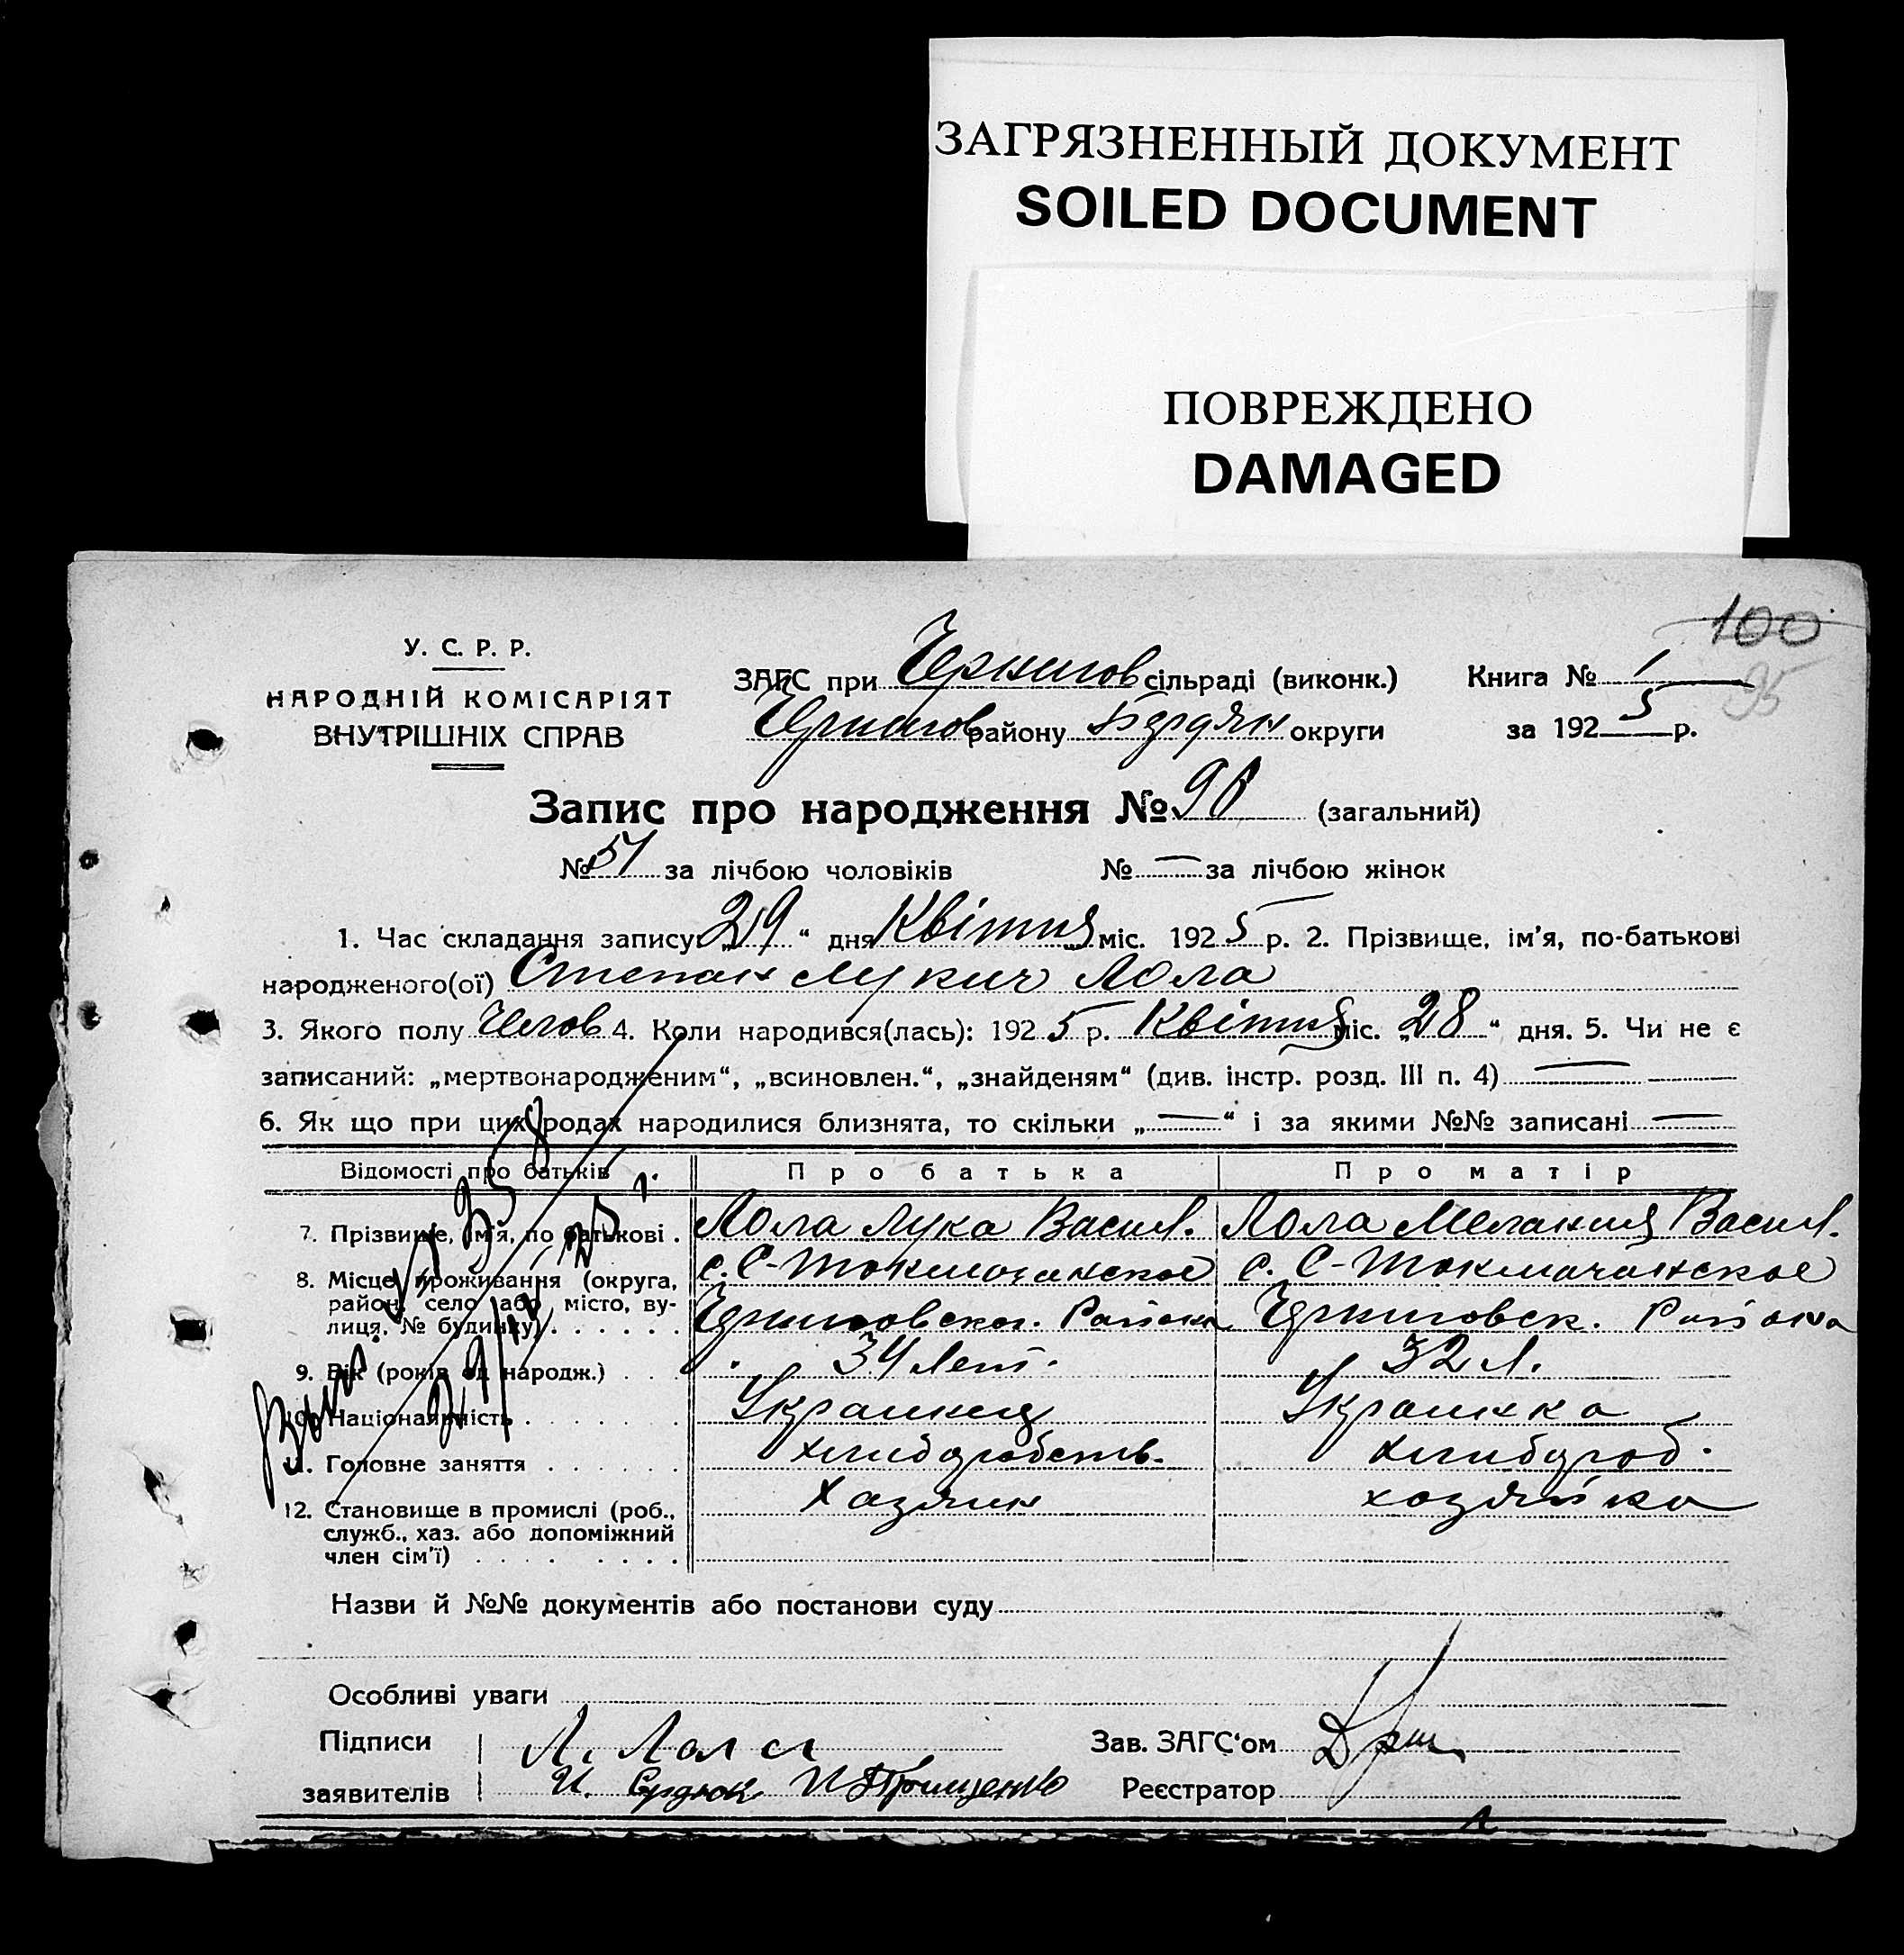 ЗАГРЯЗНЕННЫЙ ДОКУМЕНТ
SOILED DOCUMENT
ПОВРЕЖДЕНО
DAMAGED
100
95
У. С. Р. Р.
НАРОДНІЙ КОМІСАРІЯТ
ВНУТРІШНІХ СПРАВ
ЗАГС при Чернигов сільраді (виконк.)
Чернигов району Бердян округи
Книга № 1
за 1925 р.
Запис про народження № 98 (загальний)
№ 51 за лічбою чоловіків № — за лічбою жінок
1. Час складання запису: „29“ дня Квітня міс. 1925 р. 2. Прізвище, ім'я, по-батькові
народженого(ої) Степан Лукич Лола
3. Якого полу Челов 4. Коли народився(лась): 1925 р. Квітня міс. „28“ дня. 5. Чи не є
записаний: „мертвонародженим“, „всиновлен.“, „знайденям“ (див. інстр. розд. III п. 4) —
6. Як що при цих родах народилися близнята, то скільки „—“ і за якими №№ записані —
Відомості про батьків Про батька Про матір
7. Прізвище, ім'я, по батькові . Лола Лука Васил. Лола Мелания Васил.
8. Місце проживання (округа, район, село або місто, вулиця, № будинку) . . . . . .
с. С-Токмачанское с. С-Токмачанское
Черниговског. Района Черниговск. Района
9. Вік (років од народж.) . . . 34 лет. 32 л.
10. Національність . . . . . . Украинец Украинка
11. Головне заняття . . . . . . хлибородств. хлибороб.
12. Становище в промислі (роб., Хазяин хозяйка
служб., хаз. або допоміжний
член сім'ї) . . . . . . . .
Назви й №№ документів або постанови суду
Особливі уваги
Підписи Л. Лола Зав. ЗАГС'ом
заявителів И. Сердюк Реєстратор